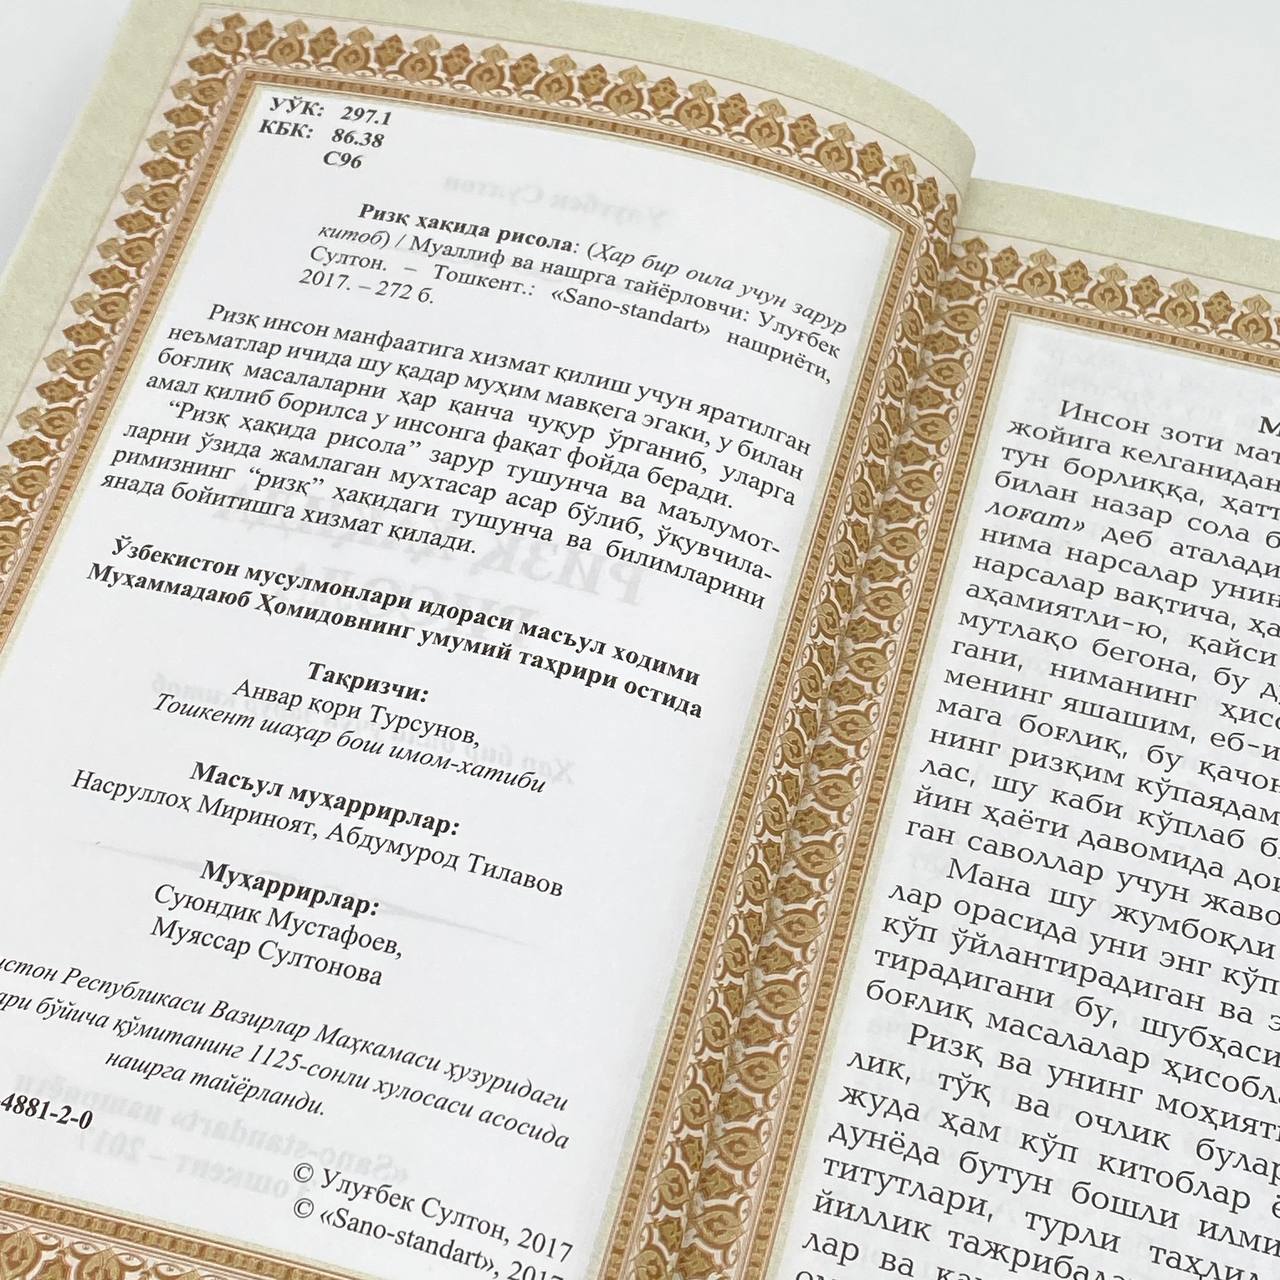 УЎК: 297.1
КБК: 86.38
С96
Ризқ ҳақида рисола: (Ҳар бир оила учун зарур
китоб) / Муаллиф ва нашрга тайёрловчи: Улуғбек
Султон. – Тошкент.: «Sano-standart» нашриёти,
2017. – 272 б.
Ризқ инсон манфаатига хизмат қилиш учун яратилган
неъматлар ичида шу қадар муҳим мавқега эгаки, у билан
боғлиқ масалаларни ҳар қанча чуқур ўрганиб, уларга
амал қилиб борилса у инсонга фақат фойда беради.
“Ризқ ҳақида рисола” зарур тушунча ва маълумот-
ларни ўзида жамлаган мухтасар асар бўлиб, ўқувчила-
римизнинг “ризқ” ҳақидаги тушунча ва билимларини
янада бойитишга хизмат қилади.
Ўзбекистон мусулмонлари идораси масъул ходими
Муҳаммадаюб Ҳомидовнинг умумий таҳрири остида
Тақризчи:
Анвар қори Турсунов,
Тошкент шаҳар бош имом-хатиби
Масъул муҳаррирлар:
Насруллоҳ Мириноят, Абдумурод Тилавов
Муҳаррирлар:
Суюндик Мустафоев,
Муяссар Султонова
Республикаси Вазирлар Маҳкамаси ҳузуридаги
бўйича қўмитанинг 1125-сонли хулосаси асосида
нашрга тайёрланди.
4881-2-0
© Улуғбек Султон, 2017
© «Sano-standart», 2017
Инсон зоти
жойига келганидан
тун борлиққа,
билан назар сола
лоғат» деб
нима нарсалар
нарсалар вақтича,
аҳамиятли-ю, қайси
мутлақо бегона, бу
гани, ниманинг
менинг яшашим,
мага боғлиқ, бу
нинг ризқим
лас, шу каби кўплаб
йин ҳаёти давомида
ган саволлар учун
Мана шу жумбоқли
лар орасида уни энг
кўп ўйлантирадиган ва
тирадигани бу,
боғлиқ масалалар
Ризқ ва унинг
лик, тўқ ва очлик
жуда ҳам кўп китоблар
дунёда бутун бошли
титутлари, турли
йиллик
лар ва